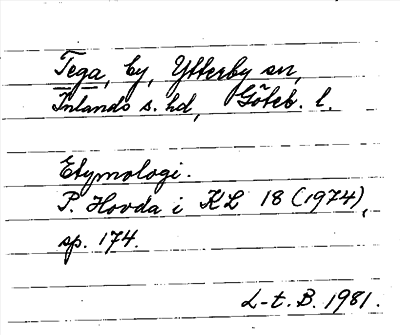 Tega, by, Ytterby sn,
Inlands s. hd, Göteb. l.
Etymologi.
P. Hovda i KL 18 (1974),
sp. 174.
L-t. B. 1981.